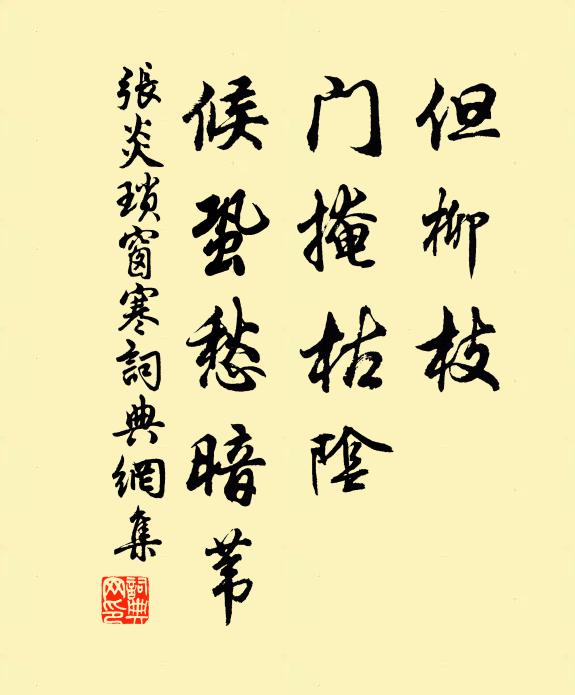 但柳枝
门掩枯陰
候蛩愁暗葦
張炎瑣窗寒詞典網集
詞典网印